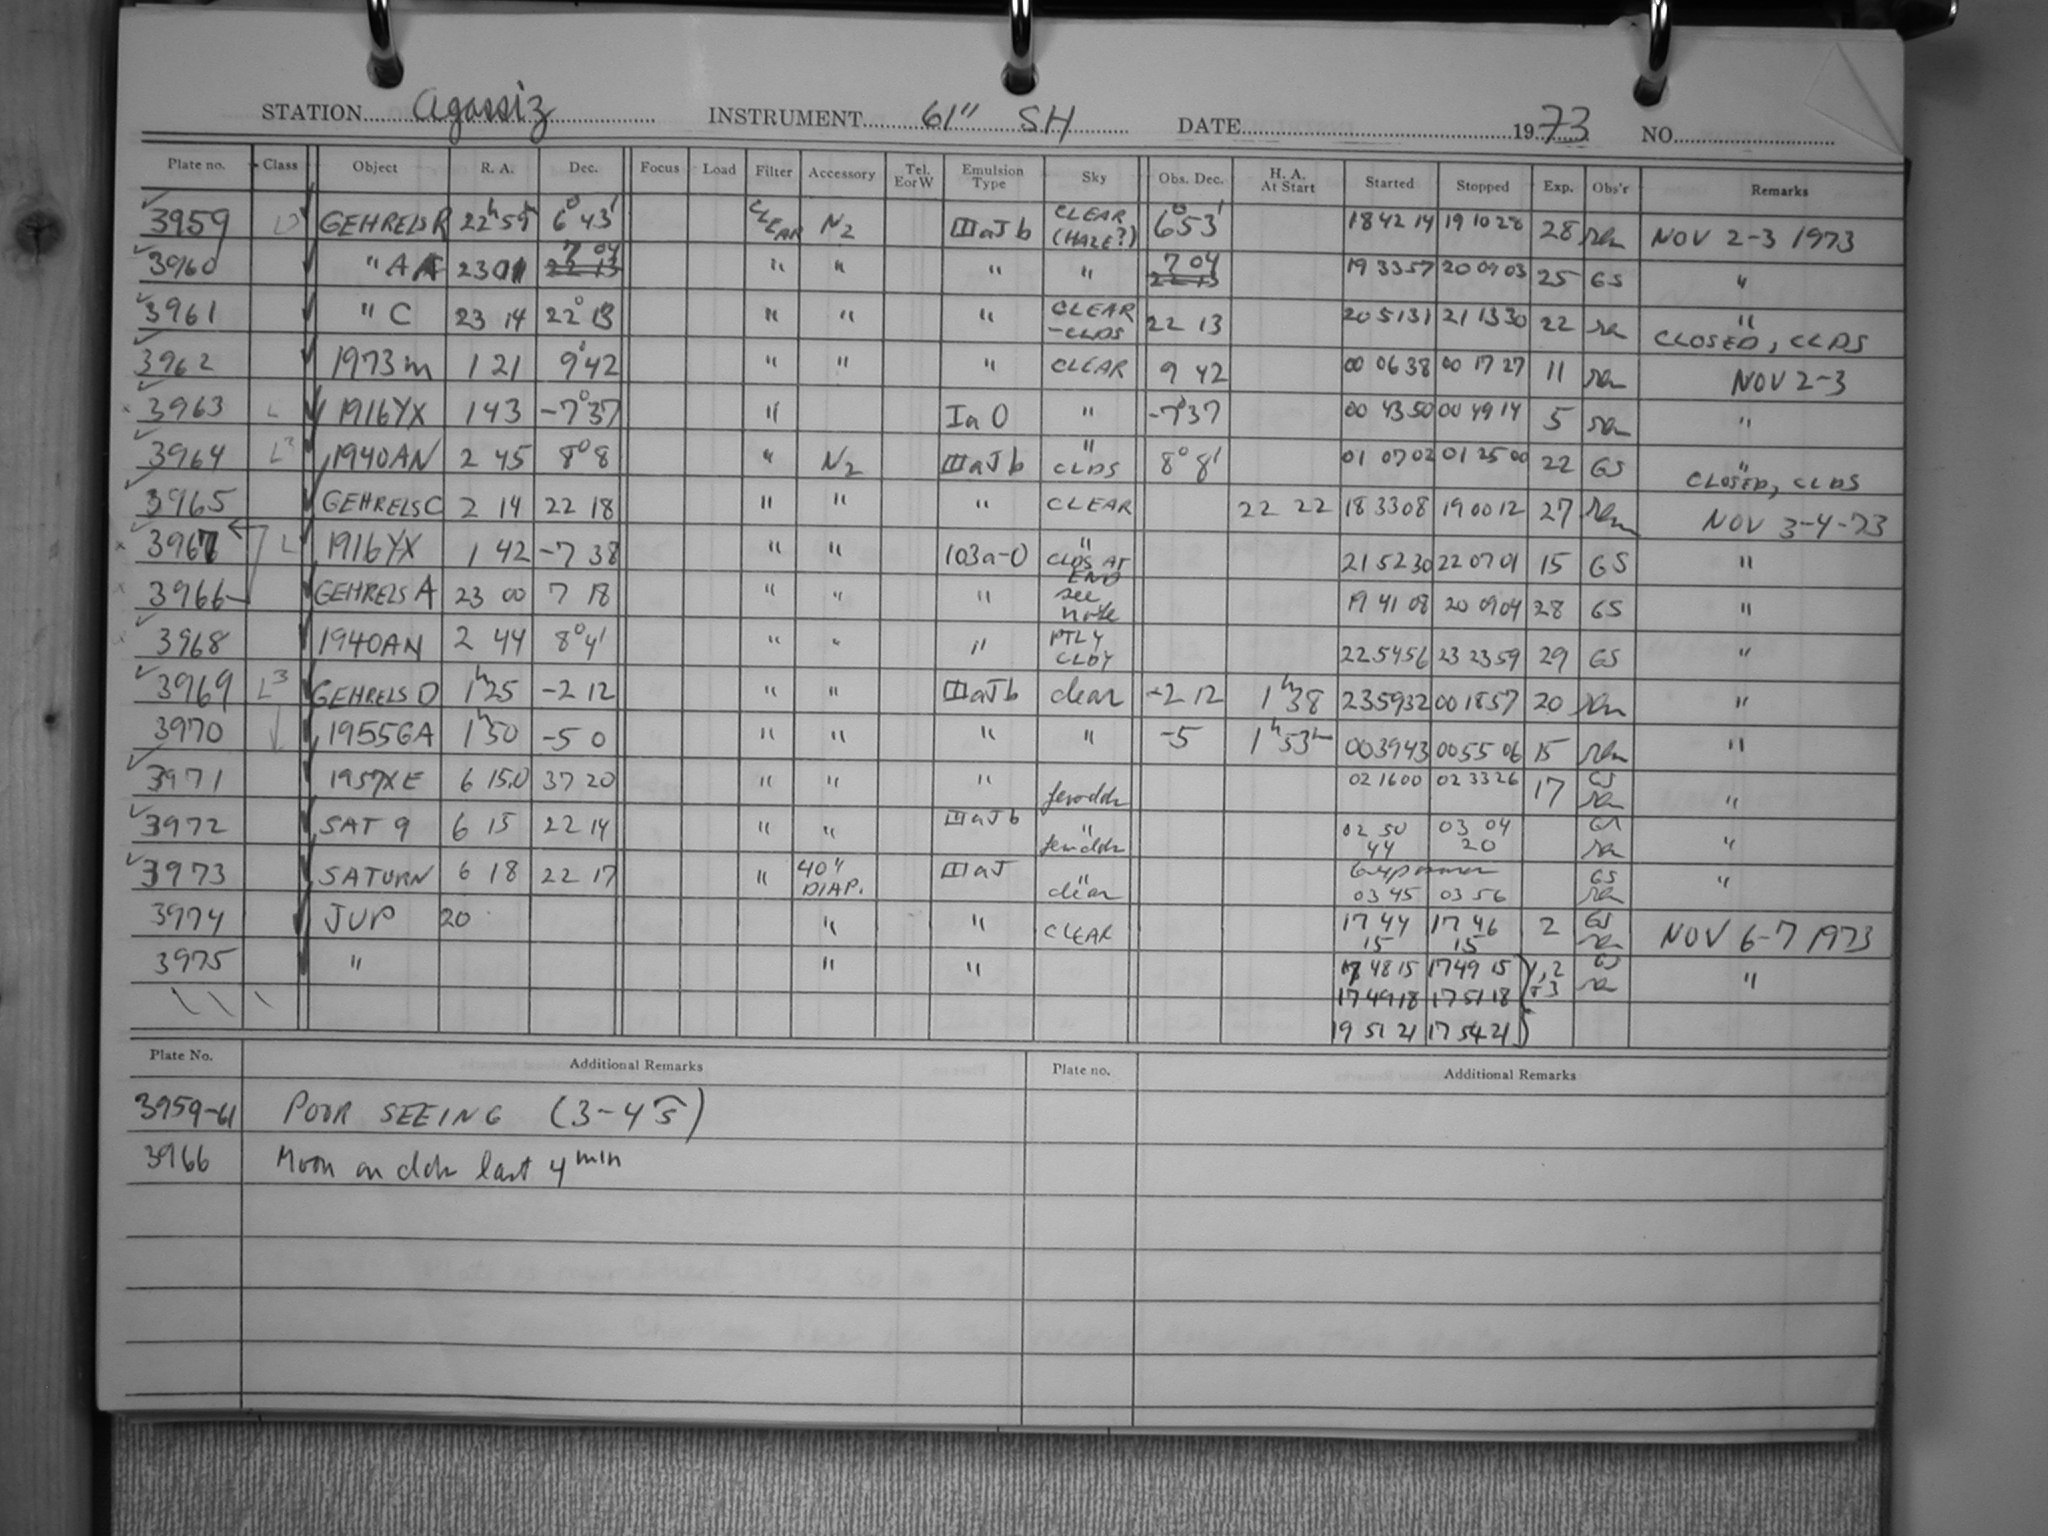 STATION Agassiz INSTRUMENT 61" SH DATE 1973 NO.
Plate no. Class Object R. A. Dec. Focus Load Filter Accessory Tel. EorW Emulsion Type Sky Obs. Dec. H. A. At Start Started Stopped Exp. Obs'r Remarks
3959 GEHRELS R 22h 59 6° 43' CLEAR N2 IIIaJ b CLEAR (HAZE?) 6° 53' 18 42 14 19 10 28 28 NOV 2-3 1973
3960 " A 23 01 7 04 " " " " 7 04 19 33 57 20 09 03 25 GS "
3961 " C 23 14 22° 13 " " " CLEAR -CLDS 22 13 20 51 31 21 13 30 22 " CLOSED, CLDS
3962 1973m 1 21 9° 42 " " " CLEAR 9 42 00 06 38 00 17 27 11 NOV 2-3
3963 L 1916YX 1 43 -7° 37 " Ia O " -7° 37 00 43 50 00 49 14 5 "
3964 L3 1940AN 2 45 8° 8 " N2 IIIaJ b " CLDS 8° 8' 01 07 02 01 25 00 22 GS " CLOSED, CLDS
3965 GEHRELS C 2 14 22 18 " " " CLEAR 22 22 18 33 08 19 00 12 27 NOV 3-4-73
3967 L 1916YX 1 42 -7 38 " " 103a-O " CLDS AT END 21 52 30 22 07 01 15 GS "
3966 GEHRELS A 23 00 7 18 " " " see note 19 41 08 20 09 04 28 GS "
3968 1940AN 2 44 8° 4' " " " PTLY CLDY 22 54 56 23 23 59 29 GS "
3969 L3 GEHRELS D 1h 25 -2 12 " " IIIaJ b clear -2 12 1h 38 23 59 32 00 18 57 20 "
3970 1955GA 1h 50 -5 0 " " " " -5 1h 53m 00 39 43 00 55 06 15 "
3971 1957XE 6 15.0 37 20 " " " 02 16 00 02 33 26 17 GS "
3972 SAT 9 6 15 22 14 " " IIIaJ b " 02 50 44 03 04 20 "
3973 SATURN 6 18 22 17 " 40" DIAP. IIIaJ " clear 03 45 03 56 GS "
3974 JUP 20 " " CLEAR 17 44 15 17 46 15 2 GS NOV 6-7 1973
3975 " " " 17 48 15 17 49 15 1, 2 + 3 GS "
17 49 18 17 51 18
19 51 21 17 54 21
Plate No. Additional Remarks Plate no. Additional Remarks
3959-61 POOR SEEING (3-4 s)
3966 Moon on last 4 min